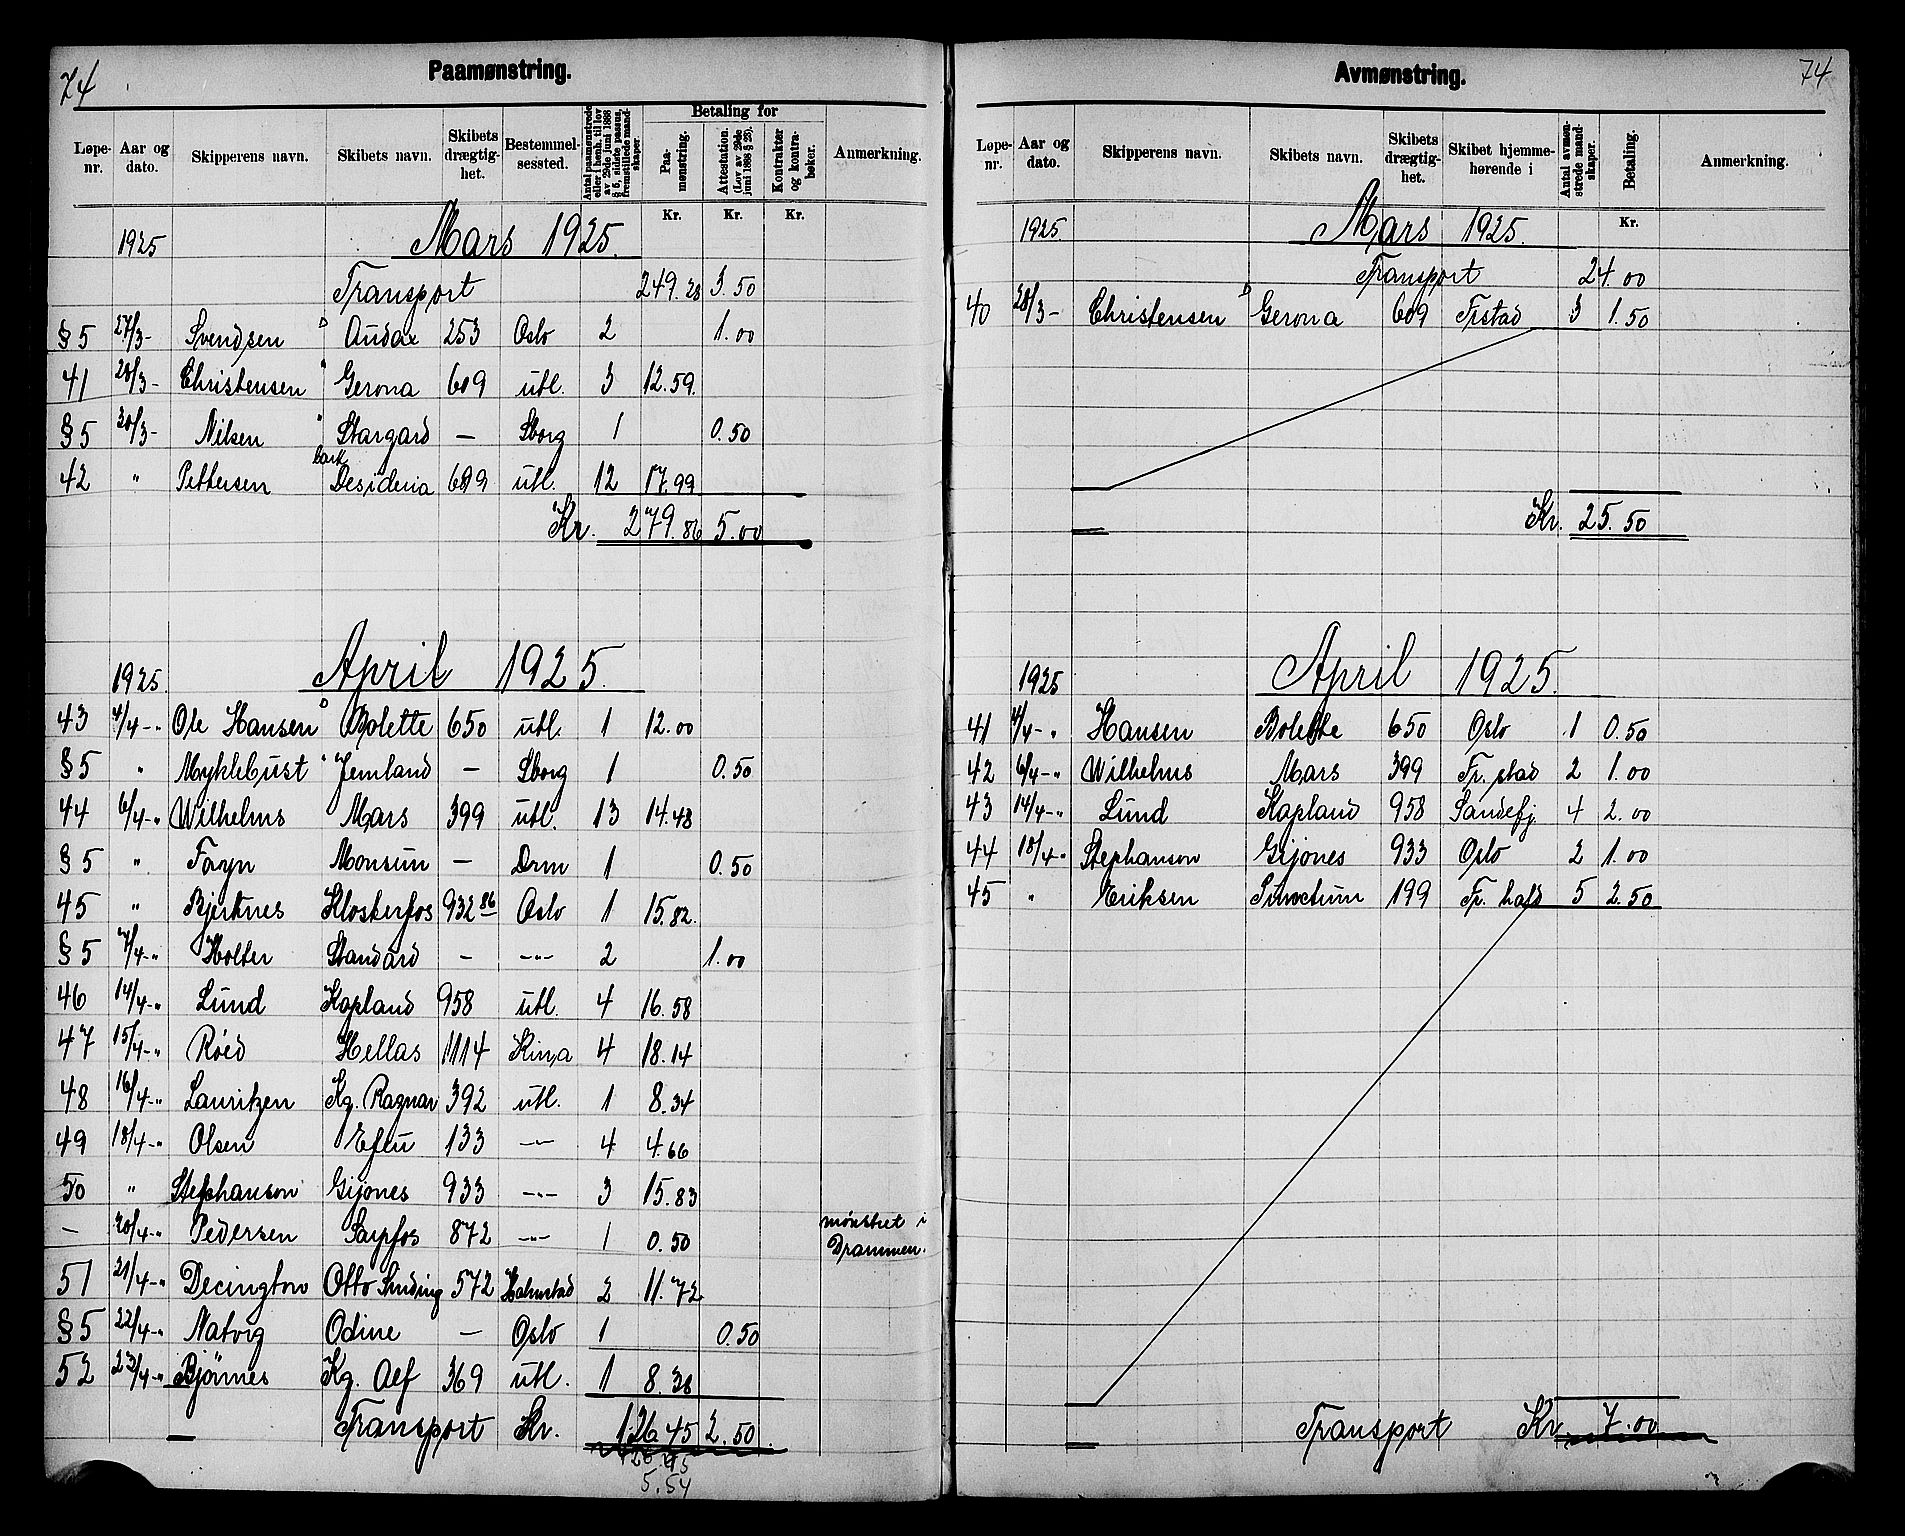 74
Paamønstring.
Løpe-nr. | Aar og dato. | Skipperens navn. | Skibets navn. | Skibets drægtig-het. | Bestemmel-sessted. | Antal paamønstrede eller i henh. til lov av 29de juni 1888 § 5, sidste passus, fremstillede mand-skaper. | Betaling for | Paa-mønstring. | Attestation. (Lov av 29de juni 1888 § 26). | Kontrakter og kontra-bøker. | Anmerkning.
Kr. Kr. Kr.
1925 Mars 1925.
Transport 249.28 3.50
§5 27/3- Svendsen D Audax 253 Oslo 2 1.00
41 28/3- Christensen " Gerona 609 utl. 3 12.59
§5 30/3- Nilsen " Stargard — Sborg 1 0.50
42 " Pettersen bark Desideria 689 utl. 12 17.99
Kr. 279.86 5.00
1925. April 1925.
43 4/4-" Ole Hansen D Bolette 650 utl. 1 12.00
§5 " Myklebust " Jemland — Sborg 1 0.50
44 6/4-" Wilhelms Mars 399 utl. 13 14.48
§5 " Foyn Monsun — Drm 1 0.50
45 " Bjerknes Klosterfos 932 86 Oslo 1 15.82
§5 7/4-" Holter Standard — -"- 2 1.00
46 14/4-" Lund Kapland 958 utl. 4 16.58
47 15/4-" Røed Hellas 1114 Kina 4 18.14
48 16/4-" Lauritzen Kg. Ragnar 392 utl. 1 8.34
49 18/4-" Olsen Eftu 133 -"- 4 4.66
50 " Stephanson Gijones 933 -"- 3 15.83
— 20/4-" Pedersen Sarpfos 872 -"- 1 0.50 mønstret i Drammen.
51 21/4-" Decington Otto Sinding 572 Halmstad 2 11.72
§5 22/4-" Natvig Odine — Oslo 1 0.50
52 23/4-" Bjønnes Kg. Alf 369 utl. 1 8.38
Transport Kr. 126.45 2.50
126.45
5.54
74
Avmønstring.
Løpe-nr. | Aar og dato. | Skipperens navn. | Skibets navn. | Skibets drægtig-het. | Skibet hjemme-hørende i | Antal avmøn-strede mand-skaper. | Betaling. | Anmerkning.
Kr.
1925. Mars 1925.
Transport 24.00
40 28/3- Christensen D Gerona 609 Frstad 3 1.50
Kr. 25.50
1925 April 1925.
41 4/4-" Hansen Bolette 650 Oslo 1 0.50
42 6/4-" Wilhelms Mars 399 Fr.stad 2 1.00
43 14/4-" Lund Kapland 958 Sandefj. 4 2.00
44 18/4-" Stephanson Gijones 933 Oslo 2 1.00
45 " Eriksen 199 Fr. hald 5 2.50
Transport Kr 7.00